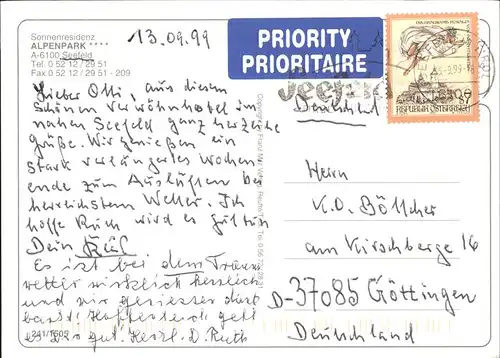 Sonnenresidenz
ALPENPARK ****
A-6100 Seefeld
Tel. 0 52 12 / 29 51
Fax 0 52 12 / 29 51 - 209
13.09.99
PRIORITY
PRIORITAIRE
Seefeld
REPUBLIK ÖSTERREICH
Lieber Otti, aus diesem
schönen Verwöhnhotel im
nahen Seefeld ganz herzliche
Grüße. Wir genießen ein
stark verlängertes Wochen-
ende zum Ausruhen bei
herrlichstem Wetter. Ich
hoffe Euch wird es gut tun
Dein
Es ist bei dem Traum-
wetter wirklich herrlich
und wir geniessen dies
geht
es Dir gut. Herzl. D. Ruth
241/1605
Deutschland
Herrn
K.O. Böttcher
am Kirschberge 16
D-37085 Göttingen
Deutschland